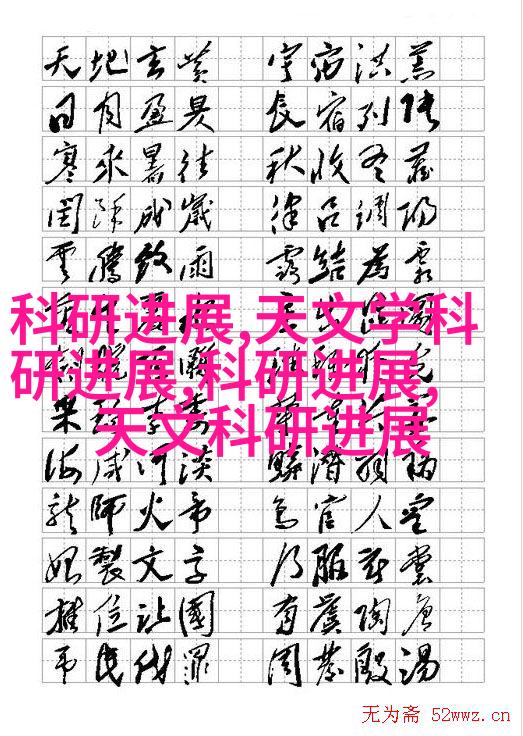 天地玄黄 宇宙洪荒
日月盈昃 辰宿列张
寒來暑往 秋收冬藏
闰馀成歲 律吕調陽
雲騰致雨 露結為霜
科研进展,天文学科
研进展,科研进展,
天文科研进展
果珍李柰
海咸河淡 鳞潜羽翔
龍師火帝 鳥官人皇
始製文字 乃服衣裳
推位让國 有虞陶唐
吊民伐罪 周發殷湯
无为斋 52wwz.cn